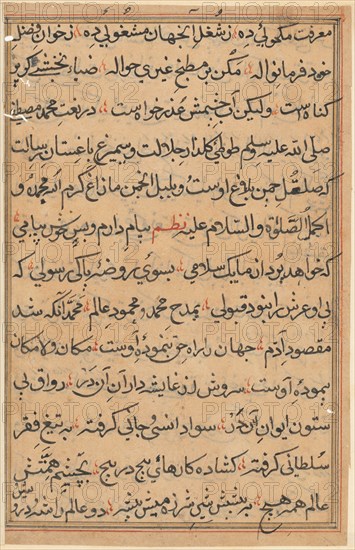 معرفت مکحولئ ده ز شغل اینجهان مشغولی ده ز خوان فضل
خود فرما نواله مکن بر مطبخ غیری حواله ضیاء نخشبی کو پر
کناه است ولیکن آب چشمش عذر خواه است در نعت محمد مصطفی
صلی الله علیه وسلم طوطی کلذار جلالت و سیمرغ باغستان رسالت
که صلصل چمن بلاغ اوست و بلبل انجمن ما زاغ کرم او محمد و
اجمل الصلوة والسلام علیه نظم پیام دارم و بس خوش پیامی
که خواهد بود از ما یک سلامی بسوی روضه پاک رسولی که
بی او عرش را نبود قبولی بمدح محمد و محمود عالم محمد آنکه شد
مقصود آدم جهان راه حق بنموده اوست مکان و لامکان
پیموده اوست سروش از غایشه داران آن در رواق بی
ستون ایوان آن در سواد جانی کرفته به تیغ فقر
سلطانی کرفته کشاده کارهای پیچ در پیچ بچشم همتش
عالم همه هیچ به پیشش شیر شرزه میش بیشه دو عالم را شده